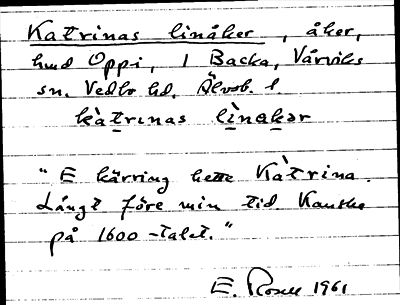 Katrinas linåker, åker,
hmd Oppi, 1 Backa, Vårviks
sn. Vedbo hd. Älvsb. l.
kàtrinas lìnakər
"E kärring hette Kàtrina.
Långt före min tid kanske
på 1600-talet."
E. 1961